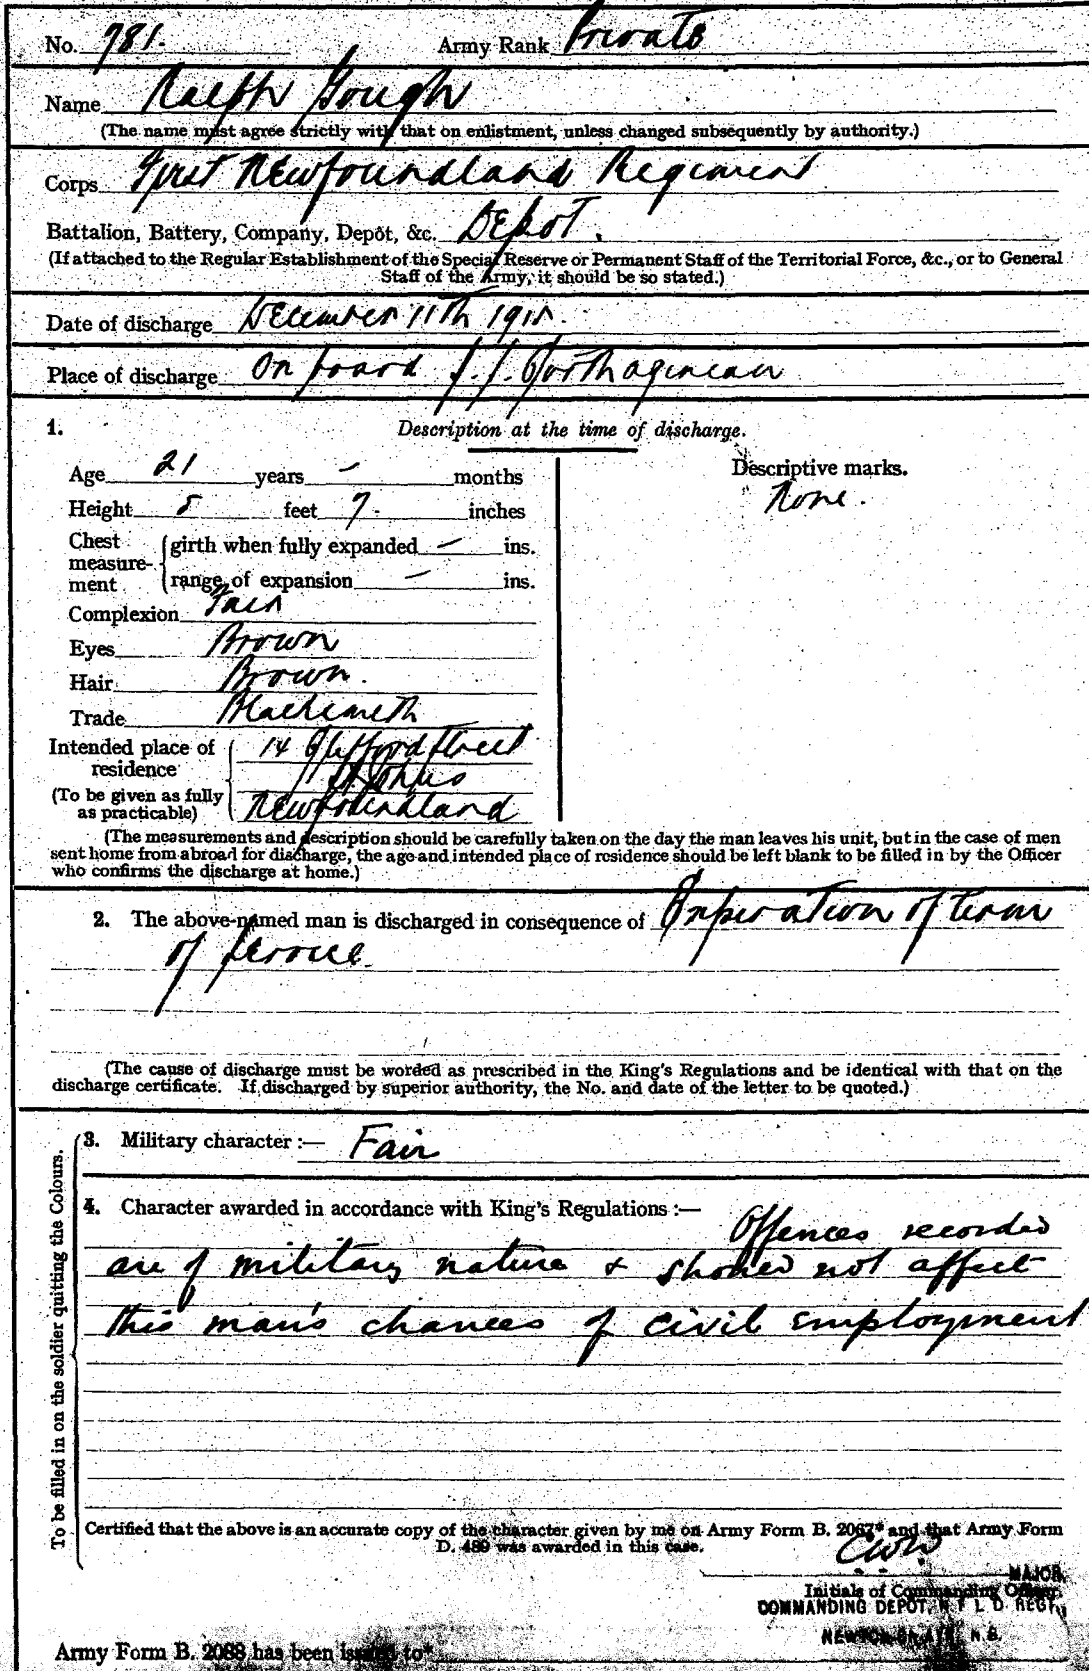 No. 781. Army Rank Private
Name Ralph Gough
(The name must agree strictly with that on enlistment, unless changed subsequently by authority.)
Corps First Newfoundland Regiment
Battalion, Battery, Company, Depôt, &c. Depot.
(If attached to the Regular Establishment of the Special Reserve or Permanent Staff of the Territorial Force, &c., or to General
Staff of the Army, it should be so stated.)
Date of discharge December 11th
Place of discharge On board S.S. Corthaginean
1. Description at the time of discharge.
Age 21 years - months
Descriptive marks.
None.
Height 5 feet 7. inches
Chest measure- ment
girth when fully expanded - ins.
range of expansion - ins.
Complexion Fair
Eyes Brown
Hair Brown.
Trade Blacksmith
Intended place of residence
(To be given as fully as practicable)
14 Street
St Johns
Newfoundland
(The measurements and description should be carefully taken on the day the man leaves his unit, but in the case of men
sent home from abroad for discharge, the age and intended place of residence should be left blank to be filled in by the Officer
who confirms the discharge at home.)
2. The above-named man is discharged in consequence of Expiration of term
of service.
(The cause of discharge must be worded as prescribed in the King's Regulations and be identical with that on the
discharge certificate. If discharged by superior authority, the No. and date of the letter to be quoted.)
To be filled in on the soldier quitting the Colours.
3. Military character :— Fair
4. Character awarded in accordance with King's Regulations :—
Offences recorded
are of military nature & should not affect
this man's chances of civil employment
Certified that the above is an accurate copy of the character given by me on Army Form B. 2067* and that Army Form
D. 489 was awarded in this case.
MAJOR.
Initials of Commanding Officer.
COMMANDING DEPOT, N F L D REGT.,
NEWTON-ON-AYR, N.B.
Army Form B. 2088 has been issued to*